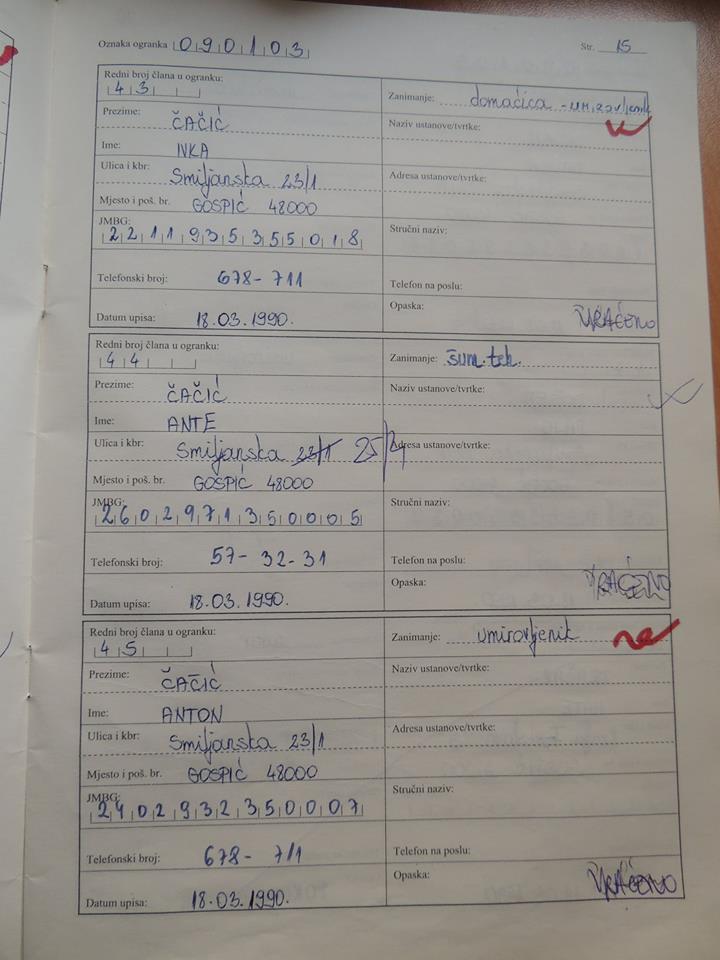 Oznaka ogranka 090103 Str. 15
Redni broj člana u ogranku:
43 Zanimanje: domaćica - umirovljenik
Prezime: ČAČIĆ Naziv ustanove/tvrtke:
Ime: INKA
Ulica i kbr: Smiljanska 23/1 Adresa ustanove/tvrtke:
Mjesto i poš. br. GOSPIĆ 48000
JMBG: 2211935355018 Stručni naziv:
Telefonski broj: 678-711 Telefon na poslu:
Datum upisa: 18.03.1990. Opaska: VRAĆENO
Redni broj člana u ogranku:
44 Zanimanje: šum. teh.
Prezime: ČAČIĆ Naziv ustanove/tvrtke:
Ime: ANTE
Ulica i kbr: Smiljanska 23/1 Adresa ustanove/tvrtke:
Mjesto i poš. br. GOSPIĆ 48000
JMBG: 2602971350005 Stručni naziv:
Telefonski broj: 57-32-31 Telefon na poslu:
Datum upisa: 18.03.1990. Opaska: VRAĆENO
Redni broj člana u ogranku:
45 Zanimanje: umirovljenik ne
Prezime: ČAČIĆ Naziv ustanove/tvrtke:
Ime: ANTON
Ulica i kbr: Smiljanska 23/1 Adresa ustanove/tvrtke:
Mjesto i poš. br. GOSPIĆ 48000
JMBG: 2402932350007 Stručni naziv:
Telefonski broj: 678-711 Telefon na poslu:
Datum upisa: 18.03.1990. Opaska: VRAĆENO